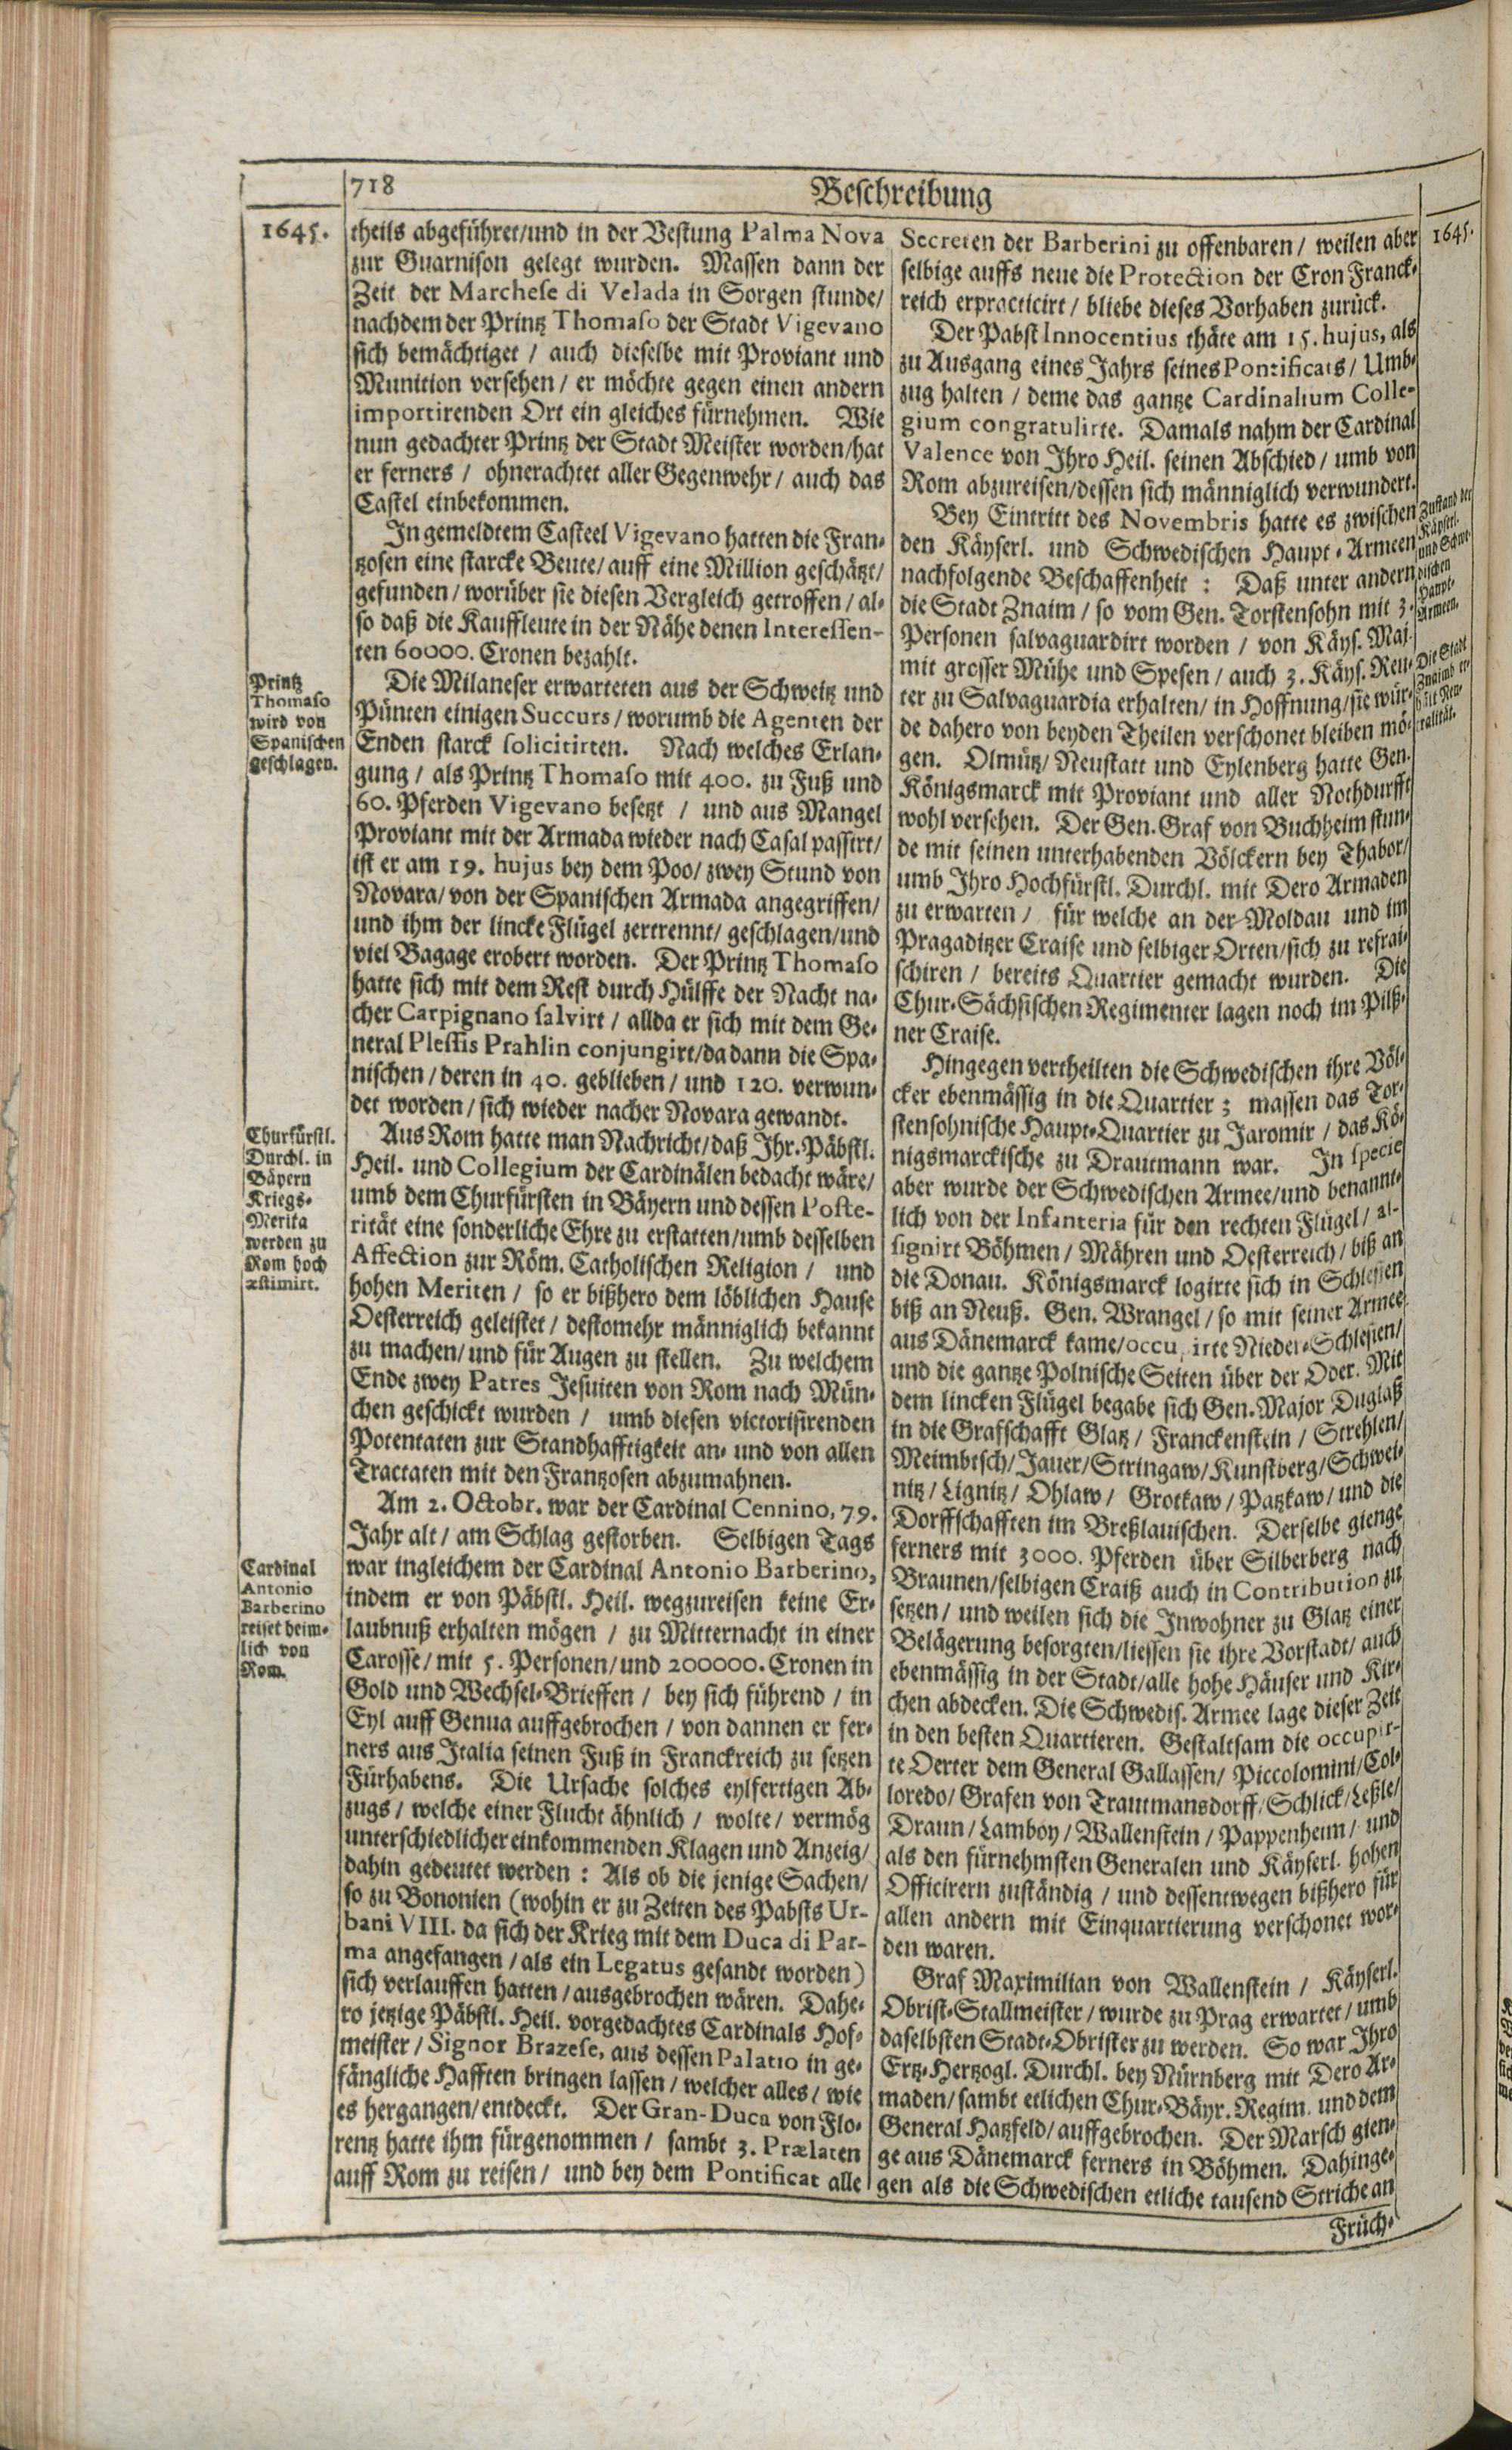 718
Beschreibung
1645.
theils abgeführet/und in der Vestung Palma Nova
zur Guarnison gelegt wurden. Massen dann der
Zeit der Marchese di Velada in Sorgen stunde/
nachdem der Printz Thomaso der Stadt Vigevano
sich bemächtiget / auch dieselbe mit Proviant und
Munition versehen / er möchte gegen einen andern
importirenden Ort ein gleiches fürnehmen. Wie
nun gedachter Printz der Stadt Meister worden/hat
er ferners / ohnerachtet aller Gegenwehr / auch das
Castel einbekommen.
In gemeldtem Casteel Vigevano hatten die Fran-
tzosen eine starcke Beute/auff eine Million geschätzt/
gefunden / worüber sie diesen Vergleich getroffen / al-
so daß die Kauffleute in der Nähe denen Interessen-
ten 60000. Cronen bezahlt.
Printz
Thomaso
wird von
Spanischen
geschlagen.
Die Milaneser erwarteten aus der Schweitz und
Pünten einigen Succurs/worumb die Agenten der
Enden starck solicitirten. Nach welches Erlan-
gung / als Printz Thomaso mit 400. zu Fuß und
60. Pferden Vigevano besetzt / und aus Mangel
Proviant mit der Armada wieder nach Casal passirt/
ist er am 19. hujus bey dem Poo/ zwey Stund von
Novara/von der Spanischen Armada angegriffen/
und ihm der lincke Flügel zertrennt/ geschlagen/und
viel Bagage erobert worden. Der Printz Thomaso
hatte sich mit dem Rest durch Hülffe der Nacht na-
cher Carpignano salvirt / allda er sich mit dem Ge-
neral Plessis Prahlin conjungirt/da dann die Spa-
nischen/deren in 40. geblieben/ und 120. verwun-
det worden/sich wieder nacher Novara gewandt.
Churfürstl.
Durchl. in
Bäyern
Kriegs-
Merita
werden zu
Rom hoch
æstimirt.
Aus Rom hatte man Nachricht/daß Ihr. Päbstl.
Heil. und Collegium der Cardinälen bedacht wäre/
umb dem Churfürsten in Bäyern und dessen Poste-
rität eine sonderliche Ehre zu erstatten/umb desselben
Affection zur Röm. Catholischen Religion / und
hohen Meriten / so er bißhero dem löblichen Hause
Oesterreich geleistet / destomehr männiglich bekannt
zu machen/und für Augen zu stellen. Zu welchem
Ende zwey Patres Jesuiten von Rom nach Mün-
chen geschickt wurden / umb diesen victorisirenden
Potentaten zur Standhafftigkeit an- und von allen
Tractaten mit den Frantzosen abzumahnen.
Am 2. Octobr. war der Cardinal Cennino, 79.
Jahr alt / am Schlag gestorben. Selbigen Tags
war ingleichem der Cardinal Antonio Barberino,
Cardinal
Antonio
Barberino
reiset heim-
lich von
Rom.
indem er von Päbstl. Heil. wegzureisen keine Er-
laubnuß erhalten mögen / zu Mitternacht in einer
Carosse/mit 5. Personen/und 200000. Cronen in
Gold und Wechsel-Brieffen / bey sich führend / in
Eyl auff Genua auffgebrochen / von dannen er fer-
ners aus Italia seinen Fuß in Franckreich zu setzen
Fürhabens. Die Ursache solches eylfertigen Ab-
zugs / welche einer Flucht ähnlich / wolte / vermög
unterschiedlicher einkommenden Klagen und Anzeig/
dahin gedeutet werden : Als ob die jenige Sachen/
so zu Bononien (wohin er zu Zeiten des Pabsts Ur-
bani VIII. da sich der Krieg mit dem Duca di Par-
ma angefangen / als ein Legatus gesandt worden)
sich verlauffen hatten / ausgebrochen wären. Dahe-
ro jetzige Päbstl. Heil. vorgedachtes Cardinals Hof-
meister / Signor Brazese, aus dessen Palatio in ge-
fängliche Hafften bringen lassen / welcher alles / wie
es hergangen/entdeckt. Der Gran-Duca von Flo-
rentz hatte ihm fürgenommen / sambt 3. Prælaten
auff Rom zu reisen / und bey dem Pontificat alle
1645.
Secreten der Barberini zu offenbaren / weilen aber
selbige auffs neue die Protection der Cron Franck-
reich erpracticirt / bliebe dieses Vorhaben zurück.
Der Pabst Innocentius thäte am 15. hujus, als
zu Ausgang eines Jahrs seines Pontificats / Umb-
zug halten / deme das gantze Cardinalium Colle-
gium congratulirte. Damals nahm der Cardinal
Valence von Ihro Heil. seinen Abschied / umb von
Rom abzureisen/dessen sich männiglich verwundert.
Zustand der
Käyserl.
und Schwe-
dischen
Haupt-
Armeen.
Bey Eintritt des Novembris hatte es zwischen
den Käyserl. und Schwedischen Haupt-Armeen
nachfolgende Beschaffenheit : Daß unter andern
die Stadt Znaim / so vom Gen. Torstensohn mit 3.
Personen salvaguardirt worden / von Käys. Maj.
Die Stadt
Znaimb er-
hält Neu-
tralität.
mit grosser Mühe und Spesen / auch 3. Käys. Reu-
ter zu Salvaguardia erhalten/ in Hoffnung/sie wür-
de dahero von beyden Theilen verschonet bleiben mö-
gen. Olmütz/ Neustatt und Eylenberg hatte Gen.
Königsmarck mit Proviant und aller Nothdurfft
wohl versehen. Der Gen. Graf von Buchheim stun-
de mit seinen unterhabenden Völckern bey Thabor/
umb Ihro Hochfürstl. Durchl. mit Dero Armaden
zu erwarten / für welche an der Moldau und im
Pragaditzer Craise und selbiger Orten/sich zu refrai-
schiren / bereits Quartier gemacht wurden. Die
Chur-Sächsischen Regimenter lagen noch im Pilß-
ner Craise.
Hingegen vertheilten die Schwedischen ihre Völ-
cker ebenmässig in die Quartier ; massen das Tor-
stensohnische Haupt-Quartier zu Jaromir / das Kö-
nigsmarckische zu Drautmann war. In specie
aber wurde der Schwedischen Armee/und benannt-
lich von der Infanteria für den rechten Flügel / as-
signirt Böhmen / Mähren und Oesterreich / biß an
die Donau. Königsmarck logirte sich in Schlesien
biß an Neuß. Gen. Wrangel / so mit seiner Armee
aus Dänemarck kame/occu irte Nieder-Schlesien/
und die gantze Polnische Seiten über der Oder. Mit
dem lincken Flügel begabe sich Gen. Major Duglaß
in die Grafschafft Glatz / Franckenstein / Strehlen/
Meimbtsch/Jauer/Stringaw/Kunstberg/Schwei-
nitz/Lignitz/ Ohlaw/ Grotkaw/Patzkaw/und die
Dorffschafften im Breßlauischen. Derselbe gienge
ferners mit 3000. Pferden über Silberberg nach
Braunen/selbigen Craiß auch in Contribution zu
setzen / und weilen sich die Inwohner zu Glatz einer
Belägerung besorgten/liessen sie ihre Vorstadt/ auch
ebenmässig in der Stadt/alle hohe Häuser und Kir-
chen abdecken. Die Schwedis. Armee lage dieser Zeit
in den besten Quartieren. Gestaltsam die occupir-
te Oerter dem General Gallassen/ Piccolomini/Col-
loredo/ Grafen von Trautmansdorff/Schlick/Leßle/
Draun/Lamboy/Wallenstein/Pappenheim/ und
als den fürnehmsten Generalen und Käyserl. hohen
Officirern zuständig / und dessentwegen bißhero für
allen andern mit Einquartierung verschonet wor-
den waren.
Graf Maximilian von Wallenstein / Käyserl.
Obrist-Stallmeister / wurde zu Prag erwartet / umb
daselbsten Stadt-Obrister zu werden. So war Ihro
Ertz-Hertzogl. Durchl. bey Nürnberg mit Dero Ar-
maden/sambt etlichen Chur-Bäyr. Regim. und dem
General Hatzfeld/auffgebrochen. Der Marsch gien-
ge aus Dänemarck ferners in Böhmen. Dahinge-
gen als die Schwedischen etliche tausend Striche an
Früch-